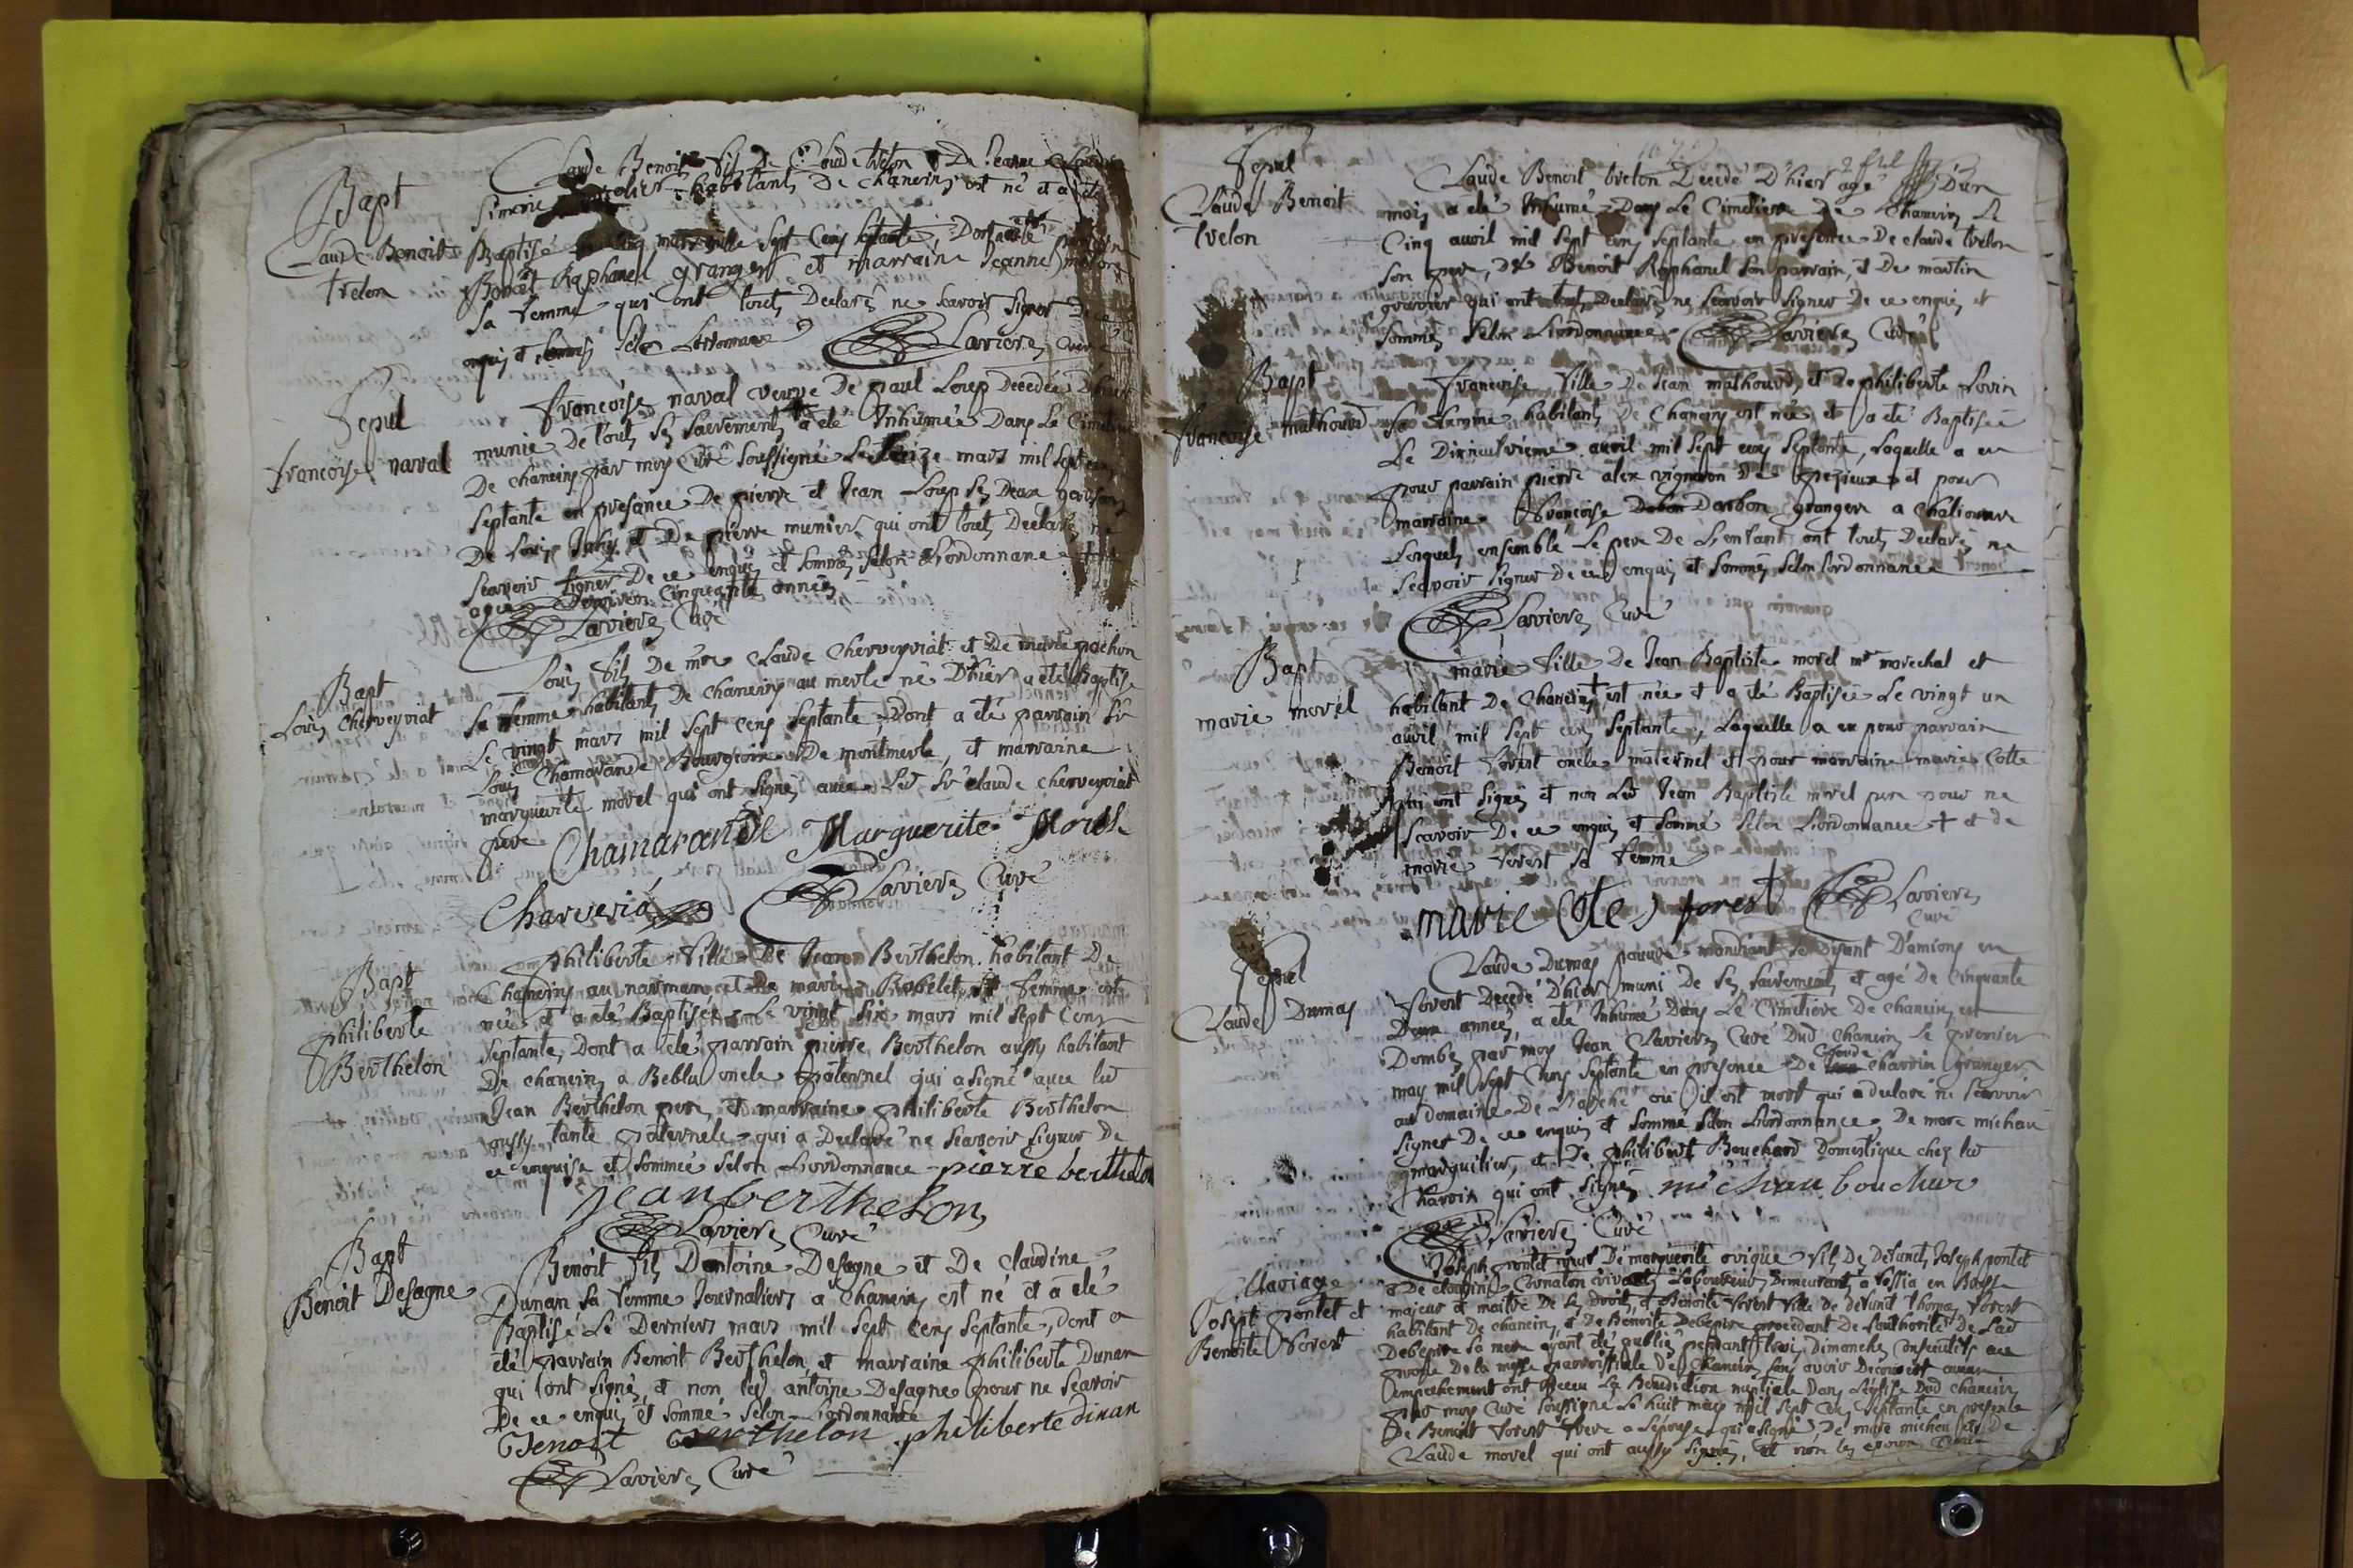 Bapt
Claude Benoit
trelon
Claude Benoit fils De Claude trelon & De Jeanne
Simonie habitants De chanein, est né et a été
Baptisé le cinq mars mille sept cens septante, Dont a été
Benoit Raphanel granger et marraine Jeanne
sa femme qui ont touts Declaré ne scavoir signer De ce
enquis et sommés selon Lordonnance Lavieres Curé
Sepul
françoise naval
françoise naval veuve De paul Loup Decedée D'hier
munie De touts ses sacrements a été Inhumée Dans Le Cimetiere
De chanein par moy Curé soussigné Le treize mars mil sept cens
septante en presance De pierre et Jean Loup ses Deux
et De pierre munier qui ont touts Declaré ne
scavoir signer De ce enquis et sommés selon Lordonnance
agée Denviron Cinquante années
Lavieres Curé
Bapt
Louis cherveyriat
Louis fils De mre Claude Cherveyriat et De marie pochon
sa femme habitants De chanein au merle né D'hier a été Baptisé
Le vingt mars mil sept cens septante, Dont a été parrain sr
Louis Chamarande Bourgeois De montmerle, et marraine
marguerite morel qui ont signés avec Led sr claude cherveyriat
pere Chamarande Marguerite Morel
Charveria Lavieres Curé
Bapt
philiberte
Berthelon
philiberte fille De Jean Berthelon habitant De
Chanein au et De marie Robelet sa femme est
née et a été Baptisée Le vingt six mars mil sept Cens
septante, Dont a été parrain pierre Berthelon aussy habitant
De chanein a Beblu oncle paternel qui a signé avec led
Jean Berthelon pere, et marraine philiberte Berthelon
aussy tante paternele qui a Declaré ne scavoir signer De
ce enquise et sommée selon Lordonnance pierre berthelon
jean berthelon
Lavieres Curé
Bapt
Benoit Desagne
Benoit fils D'antoine Desagne et De claudine
Dunan sa femme Journaliers a chanein est né et a été
Baptisé Le Derniers mars mil sept cens septante, Dont a
été parrain Benoit Berthelon et marraine philiberte Dunan
qui ont signés, et non led antoine Desagne pour ne scavoir
De ce enquis et sommé selon Lordonnance
Benoit Berthelon philiberte dinan
Lavieres Curé
Sepul
Claude Benoit
trelon
Claude Benoit trelon Decedé D'hier agé D'un
mois a été Inhumé Dans Le Cimetiere De Chanein Le
Cinq avril mil sept cens septante en presence De claude trelon
son pere, De Benoit Raphanel son parrain, et De martin
gravier qui ont touts Declaré ne scavoir signer De ce enquis et
sommés selon Lordonnance Lavieres Curé
Bapt
françoise mathourd
françoise fille De Jean mathourd, et De philiberte
sa femme habitants De Chanein est née et a été Baptisée
Le Dixneuvieme avril mil sept cens septante, Laquelle a eu
pour parrain pierre alex vigneron De pezieux et pour
marraine françoise Darbon granger a chaliouvre
Lesquels ensemble Le pere De Lenfant ont touts Declaré ne
scavoir signer De ce enquis et sommés selon Lordonnance
Lavieres Curé
Bapt
marie morel
marie fille De Jean Baptiste morel mre marechal et
habitant De Chanein † est née et a été Baptisée Le vingt un
avril mil sept cens septante, Laquelle a eu pour parrain
Benoit forest oncle maternel et pour marraine marie Cotte
qui ont signés et non Led Jean Baptiste morel pere pour ne
scavoir De ce enquis et sommé selon Lordonnance † et de
marie forest sa femme
marie Cote forest Lavieres
Curé
Sepul
Claude Dumas
Claude Dumas pauvre mandiant se disant D'amions en
forest Decedé D'hier muni De ses sacrements et agé De cinquante
Deux années, a été Inhumé Dans Le Cimetiere De chanein en
Dombes par moy Jean Lavieres Curé Dud chanein Le premier
may mil sept Cens septante en presence De Claude charvin granger
au domaine De ou il est mort qui a declaré ne scavoir
signer De ce enquis et sommé selon Lordonnance, De marc michau
marguilier, et De philibert Bouchard Domestique chez led
Charvin qui ont signés michau bouchar
Lavieres Curé
Mariage
Joseph pontet et
Benoite forest
Joseph pontet veuf De marguerite fils De Defunct Joseph pontet
et De claudine Laboureurs Demeurants a en
majeur et maitre De ses Droits, et Benoite forest fille de defunt thomas forest
habitant De chanein, et De Benoite procedant De Lauthorité De Lad
sa mere ayant été publié pendant trois Dimanches consecutifs au
prone De la messe parroissiale De Chanein sans avoir Decouvert aucun
empechement ont Receu La Benediction nuptiale Dans Léglise Dud chanein
par moy Curé soussigné Le huit may mil sept cens septante en presence
De Benoit forest frere a Lépouse qui a signé, De marc michau et De
Claude morel qui ont aussy signés, et non les epoux